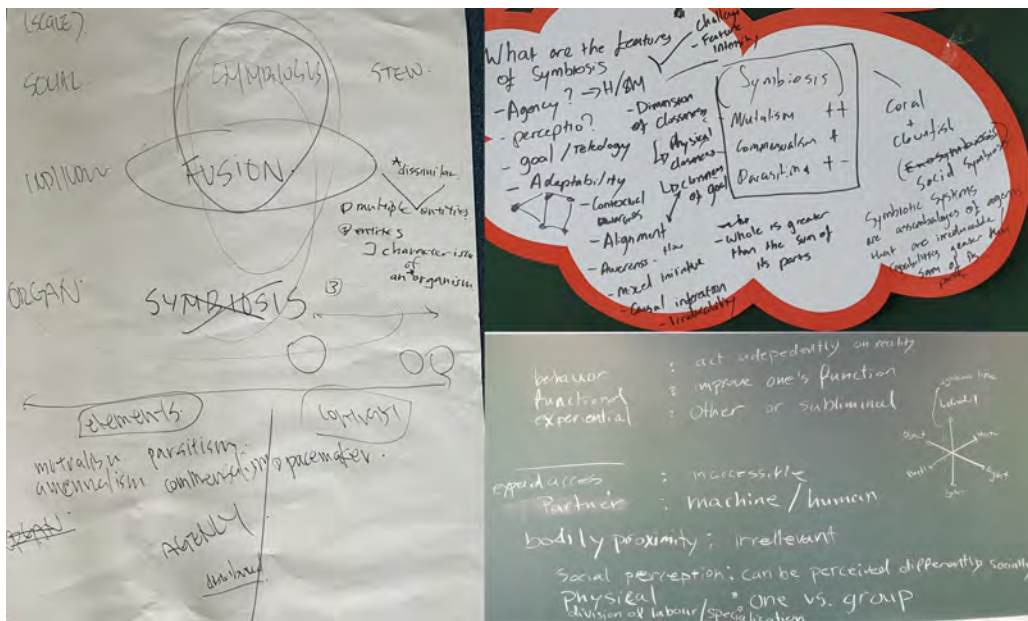 (SCALE).
SOCIAL
SYMBIOSIS
STEW.
FUSION.
*dissimilar
multiple entities
entities
characteristics
of
an organism
ORGAN.
SYMBIOSIS
③
elements.
contrast
mutralism parsitism.
amennalism commensalism pacemaker.
ORGAN.
AGENCY
What are the features
of Symbiosis
- Agency? → H/SM
- perceptio?
- goal / Teleology
- Adaptability
- Contextual
- Alignment
- mixed initiative
- Causal interation
- Irreducability
- challenge
- Feature
Intensity
- Dimension
of closeness
Physical
closeness
closeness
of goal
- Whole is greater
than the sum of
its parts
Symbiosis
- Mutalism ++
- Commensualism +
- Parasiting + -
Coral
+
Clownfish
Social Symbiosis
Symbiotic Systems
are assemblages of agents
that are irreducable /
capabilities greater than
sum of its
parts
behavior : act indepedently on reality
functional : improve one's function
experiential : Other or subliminal
: inaccessible
Partner : machine / human
bodily proximity : irrellevant
Social perception : can be perceived differently socially
physical : One vs. group
division of labour / specialication